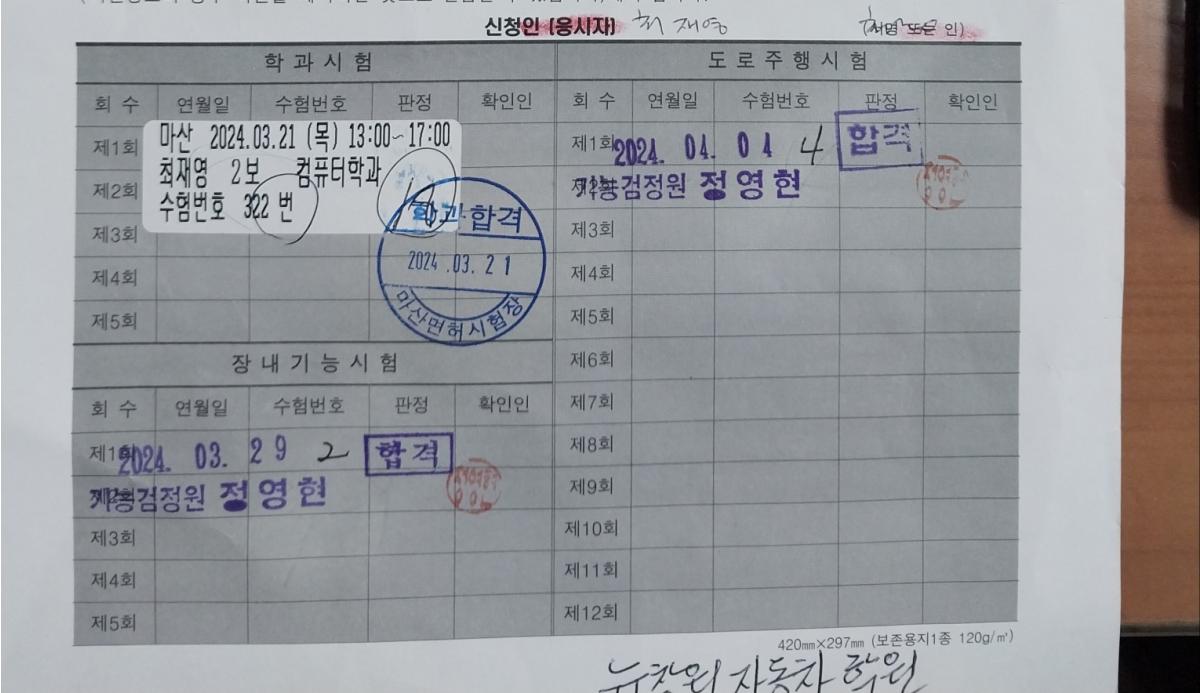 신청인 (응시자) 최재영 (서명 또는 인)
학과시험
회 수 연월일 수험번호 판정 확인인
제1회
마산 2024.03.21 (목) 13:00~17:00
최재영 2보 컴퓨터학과
수험번호 322 번
제2회
제3회
제4회
제5회
학과합격
2024.03.21
마산면허시험장
장내기능시험
회 수 연월일 수험번호 판정 확인인
제1회 2024. 03. 29 2 합격
기능검정원 정영현
제3회
제4회
제5회
도로주행시험
회 수 연월일 수험번호 판정 확인인
제1회 2024. 04. 04 4 합격
제2회 기능검정원 정영현
제3회
제4회
제5회
제6회
제7회
제8회
제9회
제10회
제11회
제12회
420㎜×297㎜ (보존용지1종 120g/㎡)
뉴창원 자동차 학원